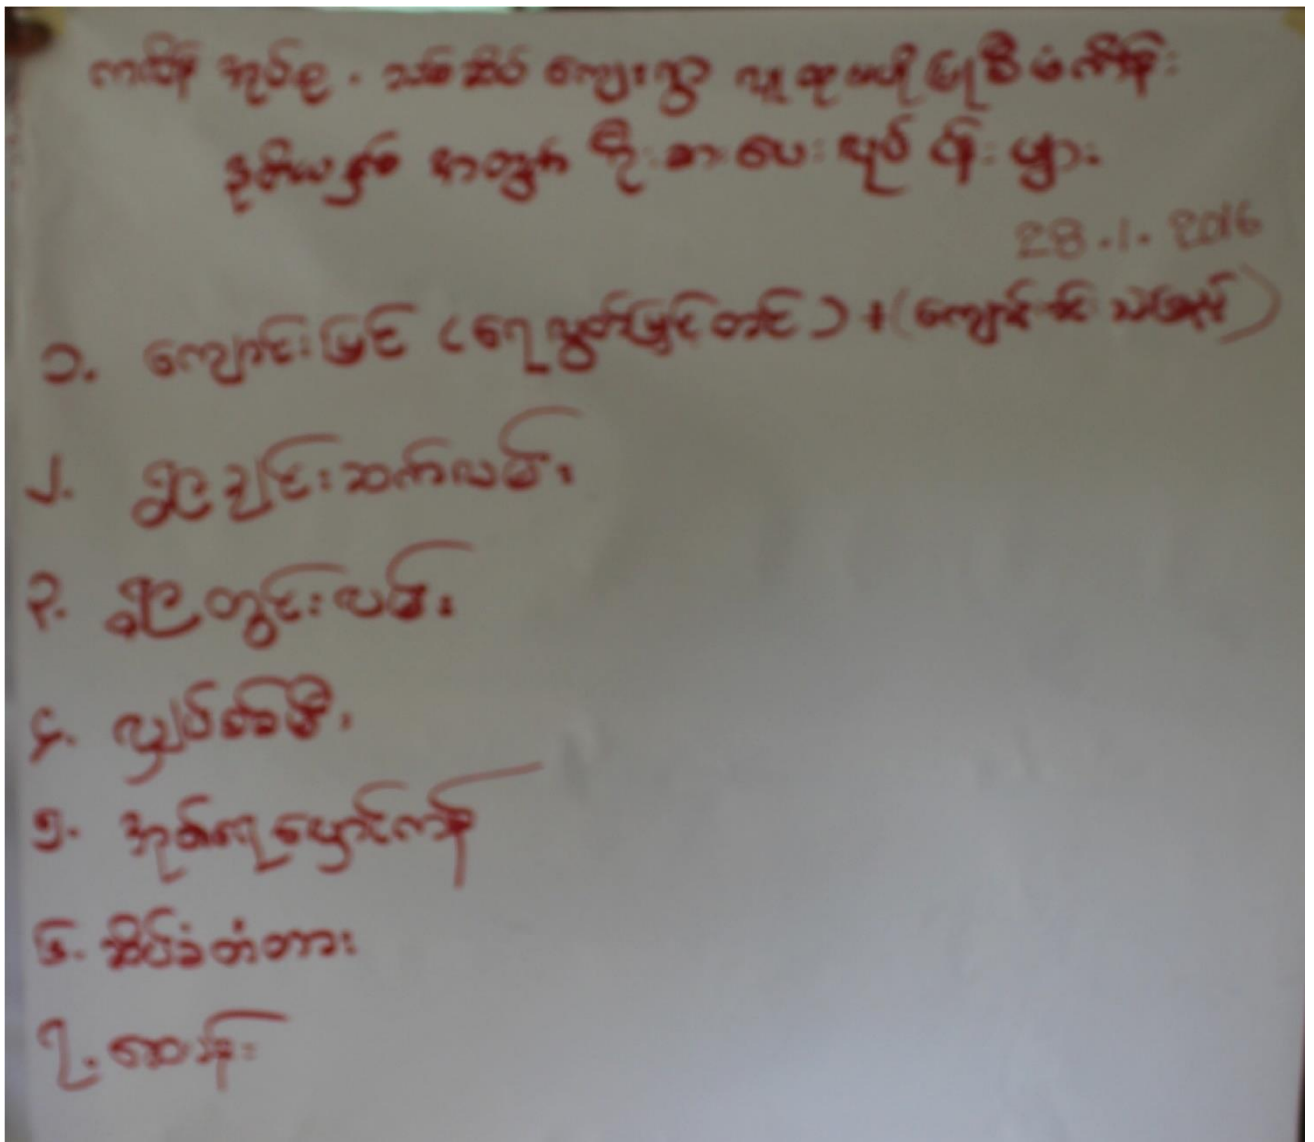 ကသိန် အုပ်စု . သစ်ဆိပ် ကျေးရွာ လူထုဗဟိုပြုစီမံကိန်း
ဒုတိယနှစ် အတွက် ဦးစားပေး လုပ်ငန်းများ
28.1.2016
၁. ကျောင်းမြင် (ရေလွှတ်မြှင့်တင်) + (ကျောင်း
၂. ရွာချင်းဆက်လမ်း
၃. ရွာတွင်းလမ်း
၄. လျှပ်စစ်မီး
၅. အုတ်ရေလှောင်ကန်
၆. ဆိပ်ခံတံတား
၇. ဆေးခန်း